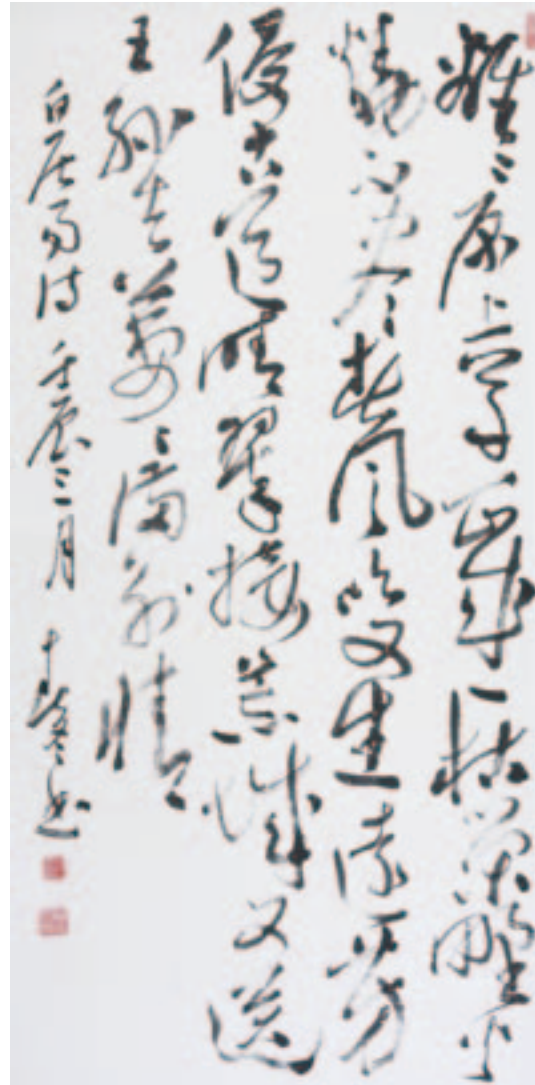 離々原上草一歲一枯榮野火
燒不盡春風吹又生遠芳
侵古道晴翠接荒城又送
王孫去萋々滿別情
白居易詩 壬辰三月 書